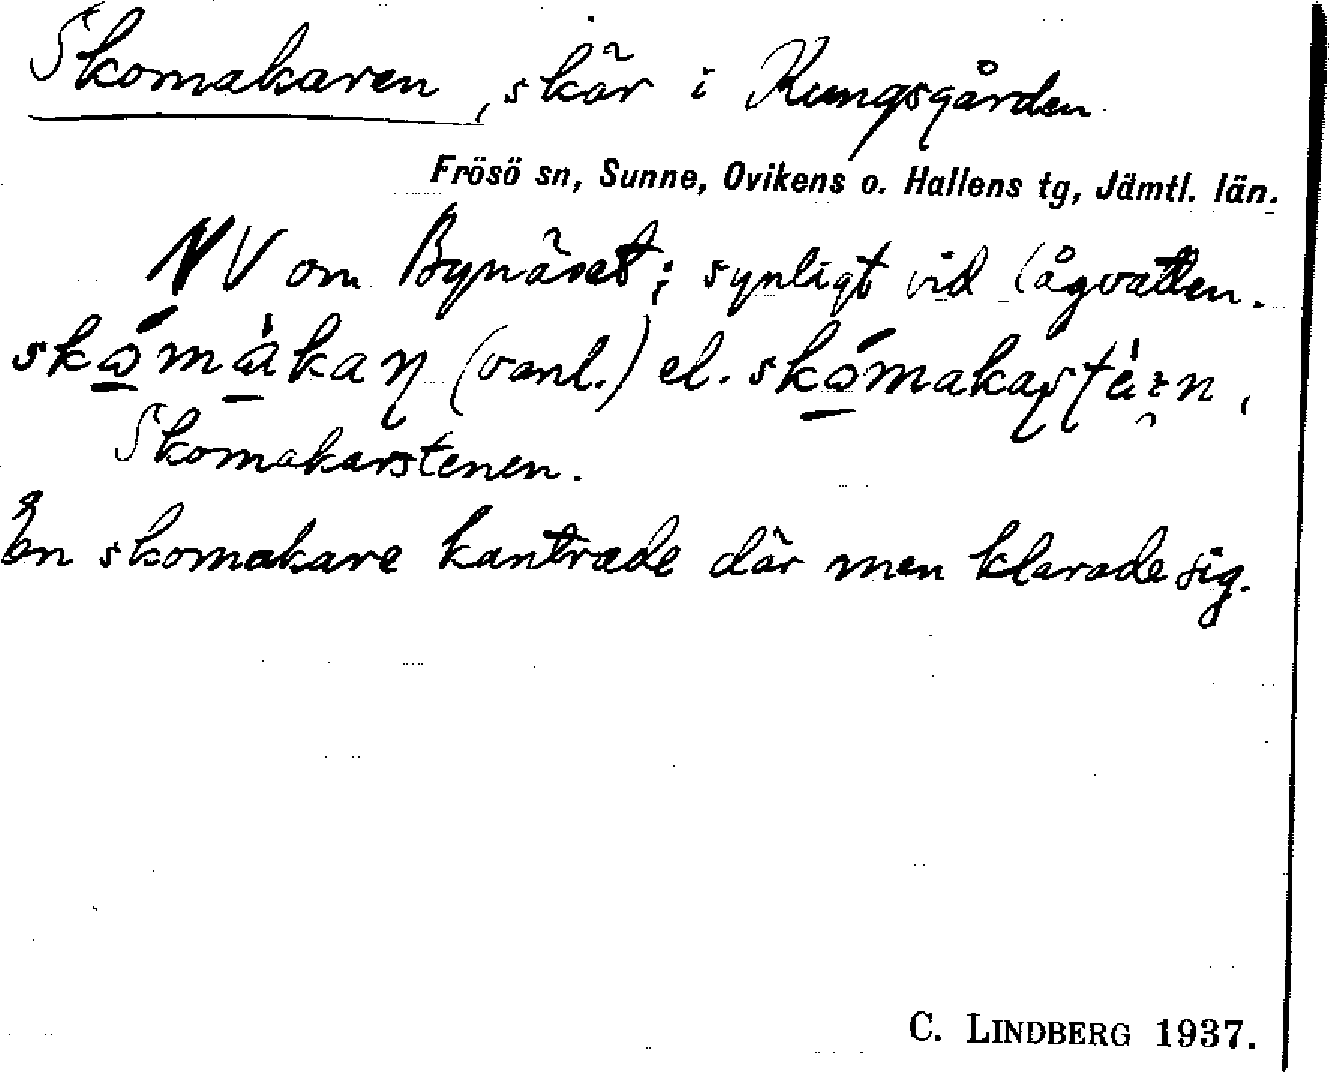 Skomakaren, skär i Kungsgården
Frösö sn, Sunne, Ovikens o. Hallens tg, Jämtl. län.
NV om Bynäset; synligt vid lågvatten.
(vanl.) el.
Skomakarstenen.
En skomakare kantrade där men klarade sig.
C. LINDBERG 1937.